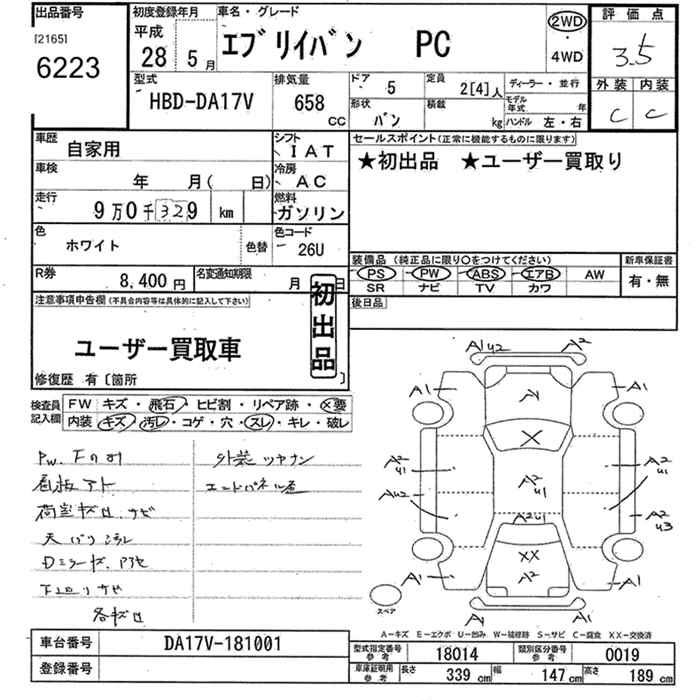 出品番号
[2165]
6223
初度登録年月
平成
28 5月
車名・グレード
エブリイバン PC
2WD
・
4WD
評価点
3.5
外装 内装
C C
型式
HBD-DA17V
排気量
658
CC
ドア
5
定員
2[4]人
ディーラー・並行
形状
バン
積載
kg
モデル年式 年
ハンドル 左・右
車歴
自家用
シフト
IAT
車検
年 月( 日)
冷房
AC
走行
9万0千329 km
燃料
ガソリン
色
ホワイト
色替
色コード
26U
R券
8,400円
名変通知期限
月 日
セールスポイント(正常に機能するものに限ります)
★初出品 ★ユーザー買取り
装備品 (純正品に限り○をつけてください)
新車保証書
PS PW ABS エアB AW
SR ナビ TV カワ
有・無
後日品
注意事項申告欄(不具合内容等は具体的に記入して下さい)
初出品
ユーザー買取車
修復歴 有〔箇所
検査員
記入欄
FW キズ・飛石・ヒビ割・リペア跡・×要
内装 キズ・汚レ・コゲ・穴・スレ・キレ・破レ
看板アト
外装ツヤナシ
A1 U2 A2
A1 A1
A
X
A2 U1
A2 U1
A2 U1
AU2
A2 U3
A2U1
XX
A2
A1 A1
A1 A1
スペア
A−キズ E−エクボ U−凹み W−補修跡 S−サビ C−腐食 XX−交換済
車台番号
DA17V-181001
登録番号
型式指定番号
参考
18014
類別区分番号
参考
0019
車庫証明用
参考
長さ 339 cm 幅 147 cm 高さ 189 cm